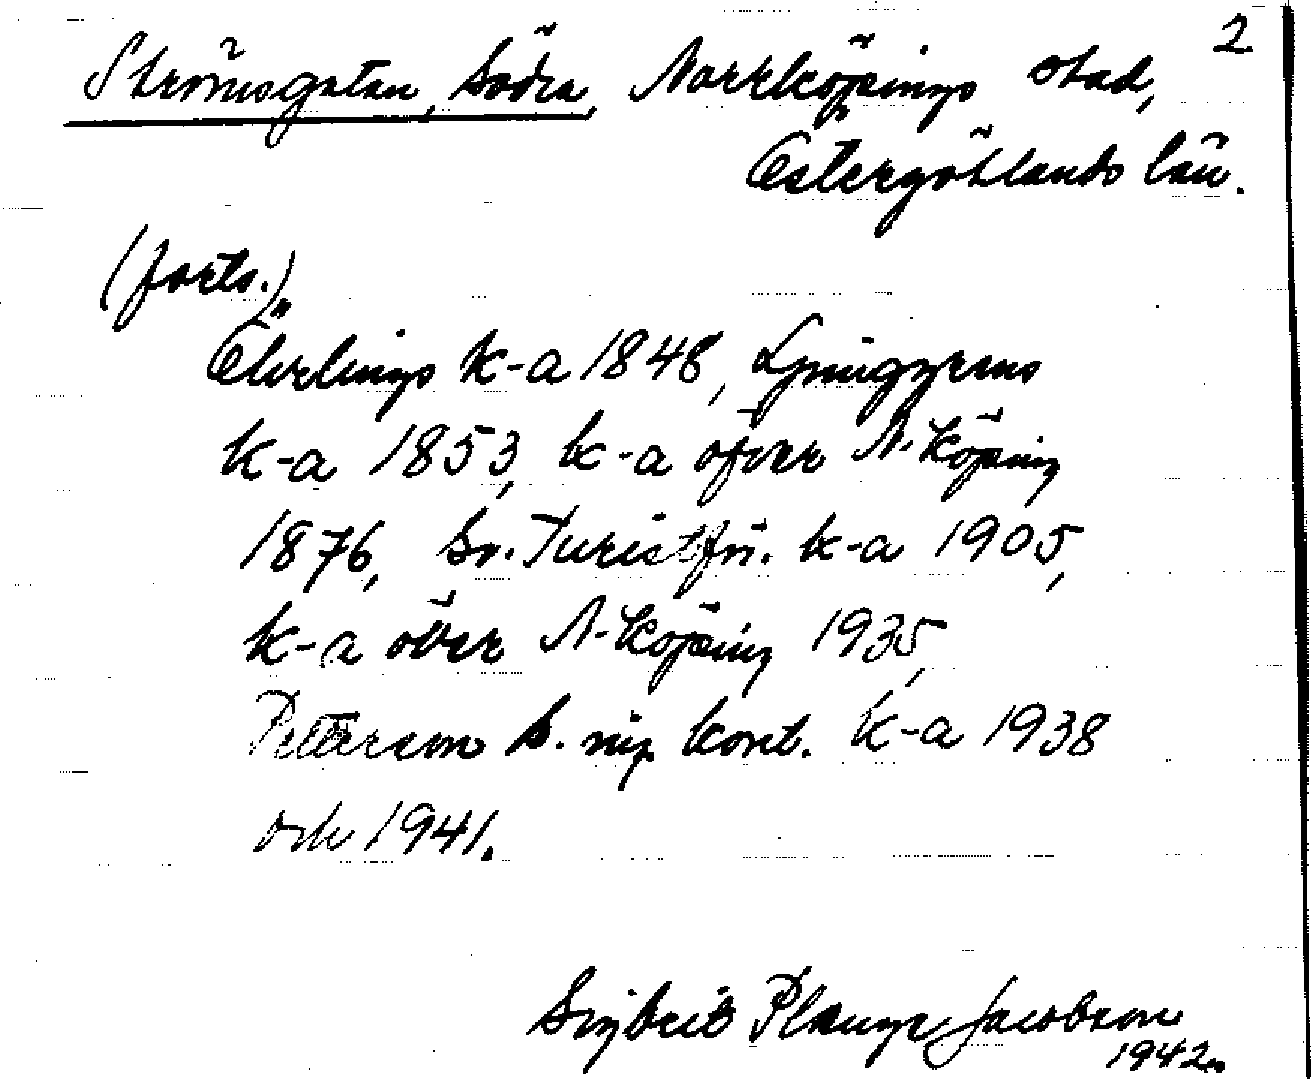 2
Strömsgatan, Södra, Norrköpings stad,
Östergötlands län.
(forts.)
Öhrlings k-a 1848, Ljunggrens
k-a 1853, k-a öfver N-köping
1876, Sv. Turistför. k-a 1905,
k-a över N-köping 1935,
Petterson S. kont. k-a 1938
och 1941.
Sigbrit Plænge Jacobson
1942.